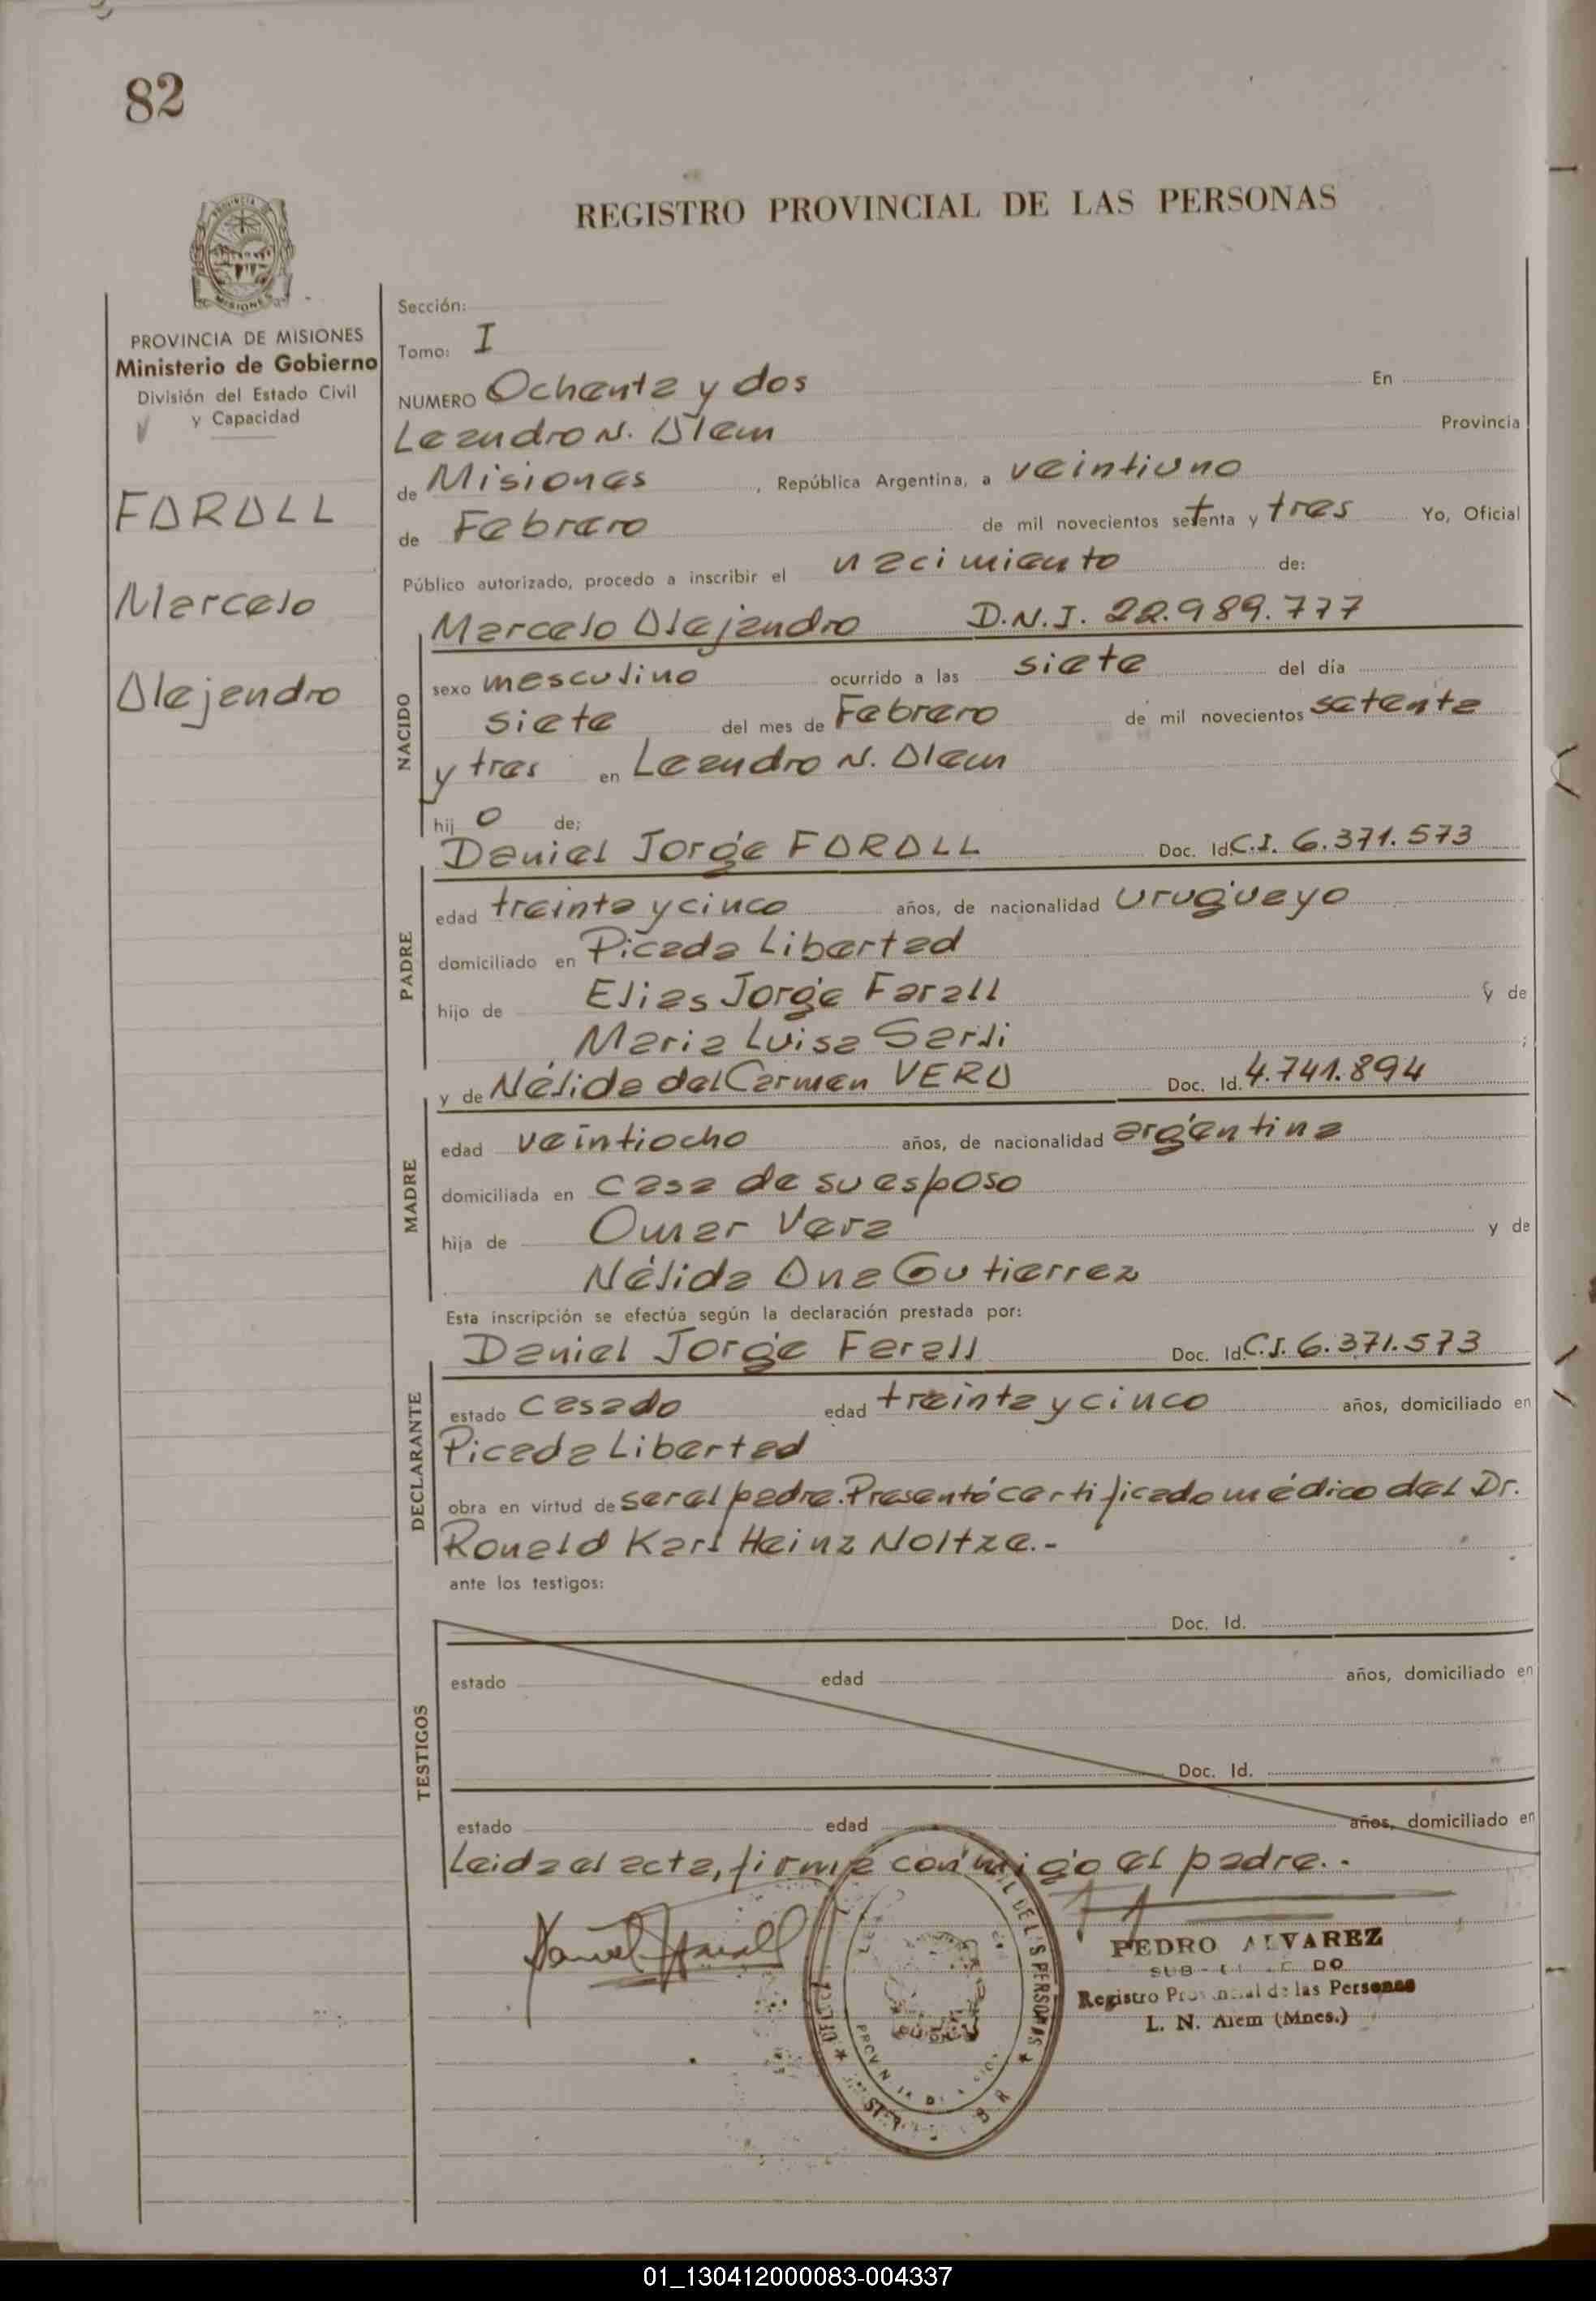 82
REGISTRO PROVINCIAL DE LAS PERSONAS
PROVINCIA DE
MISIONES
PROVINCIA DE MISIONES
Ministerio de Gobierno
División del Estado Civil
y Capacidad
FARALL
Marcelo
Alejandro
Sección:
Tomo: I
NUMERO Ochenta y dos En
Leandro N. Alem Provincia
de Misiones, República Argentina, a veintiuno
de Febrero de mil novecientos setenta y tres Yo, Oficial
Público autorizado, procedo a inscribir el nacimiento de:
Marcelo Alejandro D.N.I. 22.989.777
NACIDO
sexo masculino ocurrido a las siete del día
siete del mes de Febrero de mil novecientos setenta
y tres en Leandro N. Alem
hijo de:
Daniel Jorge FARALL Doc. Id. C.I. 6.371.573
PADRE
edad treinta y cinco años, de nacionalidad uruguayo
domiciliado en Picada Libertad
hijo de Elias Jorge Farall y de
Maria Luisa Sarli ;
y de Nélida del Carmen VERA Doc. Id. 4.741.894
MADRE
edad veintiocho años, de nacionalidad argentina
domiciliada en casa de su esposo
hija de Omar Vera y de
Nélida Ana Gutierrez
Esta inscripción se efectúa según la declaración prestada por:
Daniel Jorge Farall Doc. Id. C.I. 6.371.573
DECLARANTE
estado casado edad treinta y cinco años, domiciliado en
Picada Libertad
obra en virtud de ser el padre. Presentó certificado médico del Dr.
Ronald Karl Heinz Noltze.-
ante los testigos:
TESTIGOS
Doc. Id.
estado edad años, domiciliado en
Doc. Id.
estado edad años, domiciliado en
Leida el acta, firma conmigo el padre.-
Daniel Farall
PEDRO ALVAREZ
Registro Provincial de las Personas
L. N. Alem (Mnes.)
01_130412000083-004337